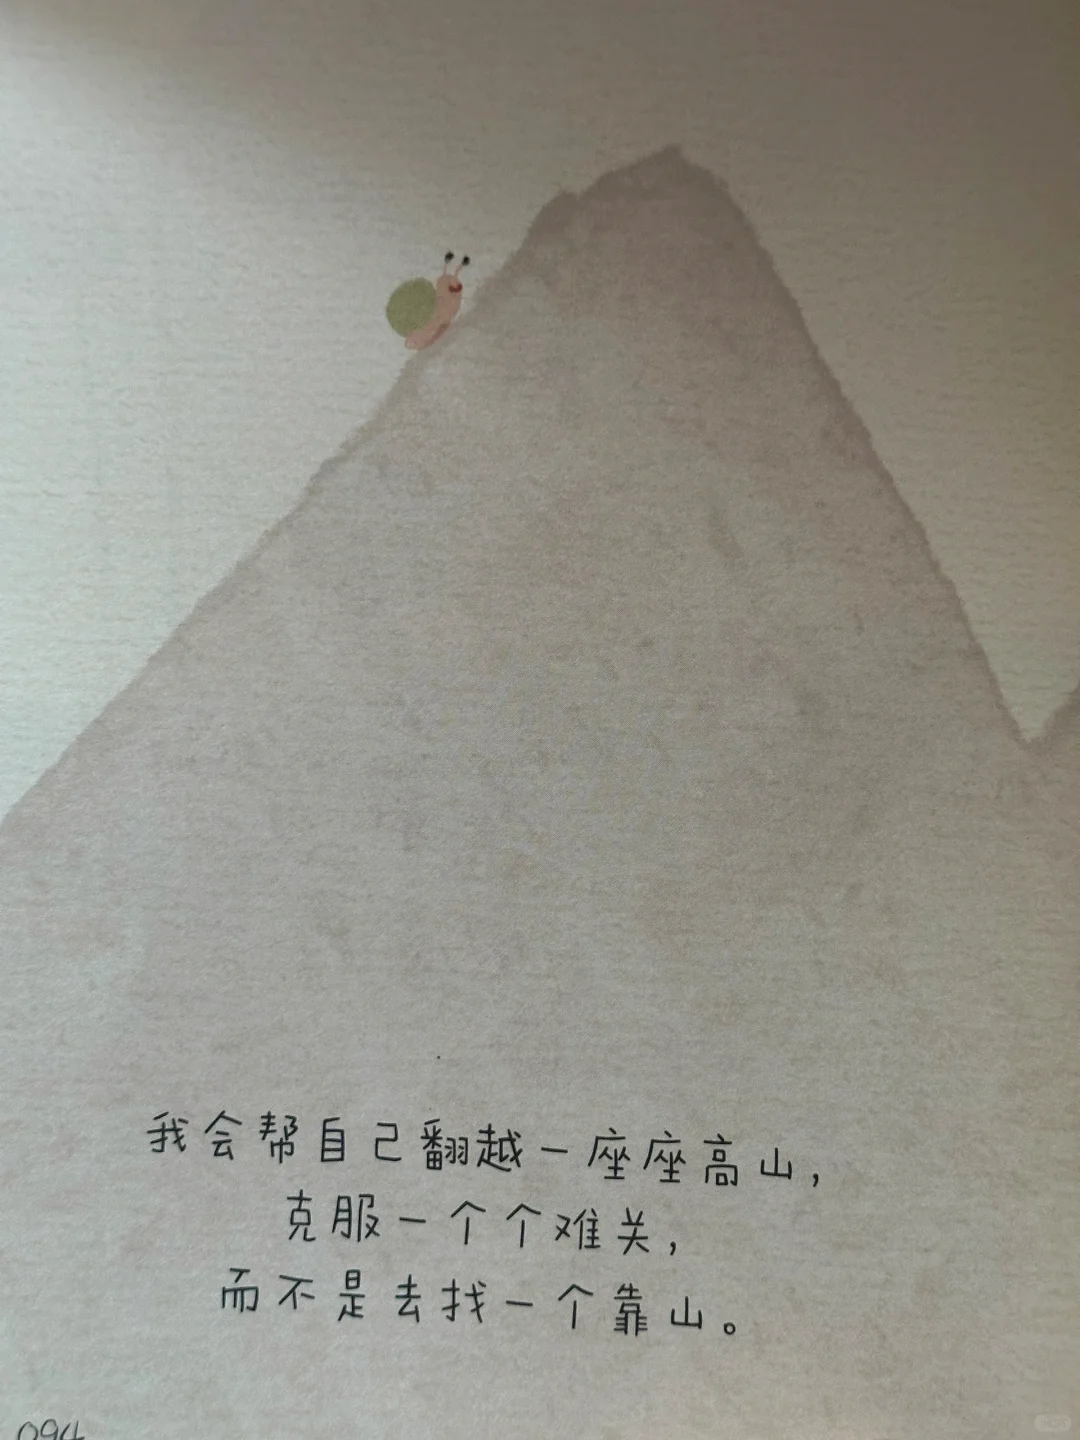 我会帮自己翻越一座座高山，
克服一个个难关，
而不是去找一个靠山。
094